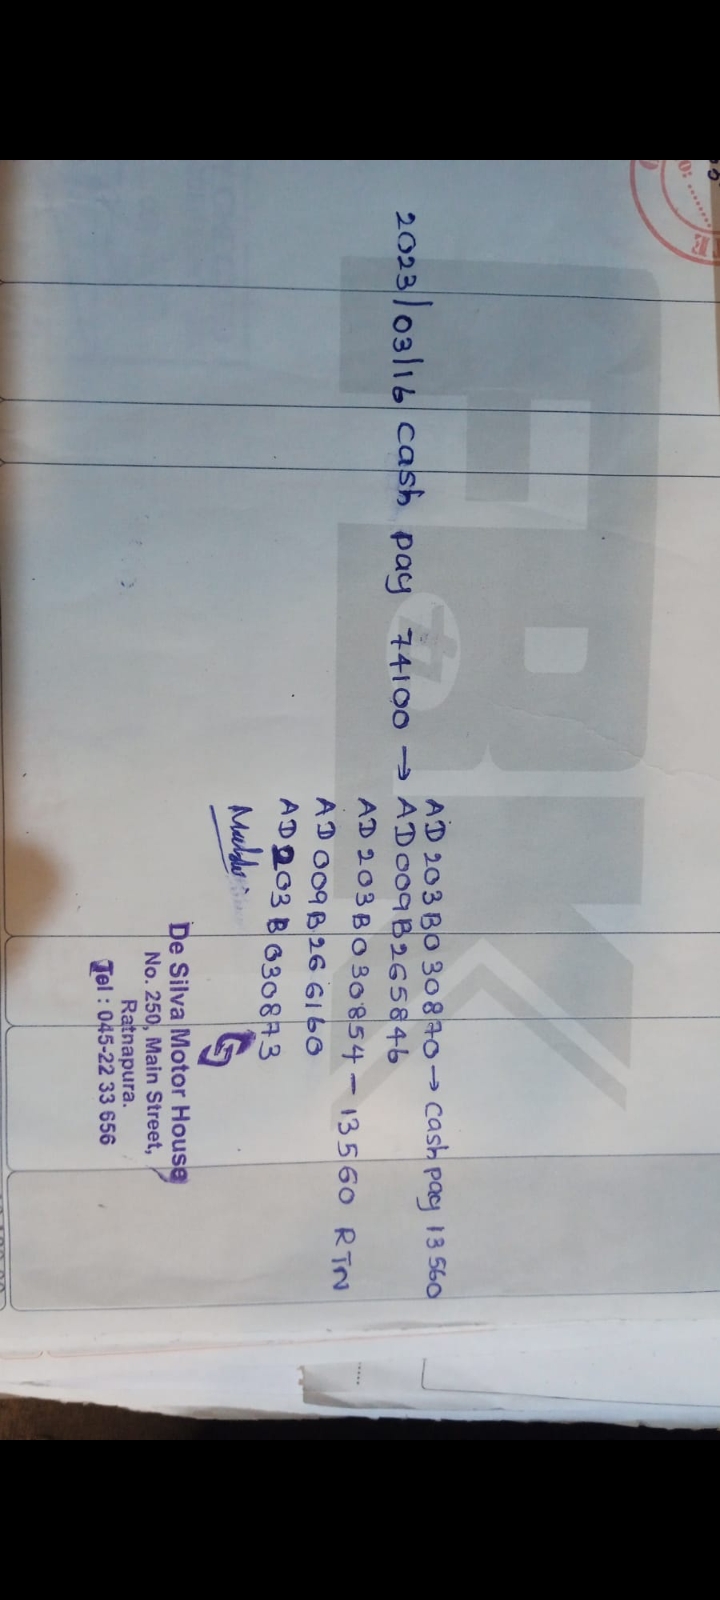 AD203B030870 → cash pay 13560
2023/03/16 cash pay 74100 → AD009B265846
AD203B030854 - 13560 RTN
AD009B266160
AD203B030873
De Silva Motor House
No. 250, Main Street,
Ratnapura.
Tel : 045-22 33 656